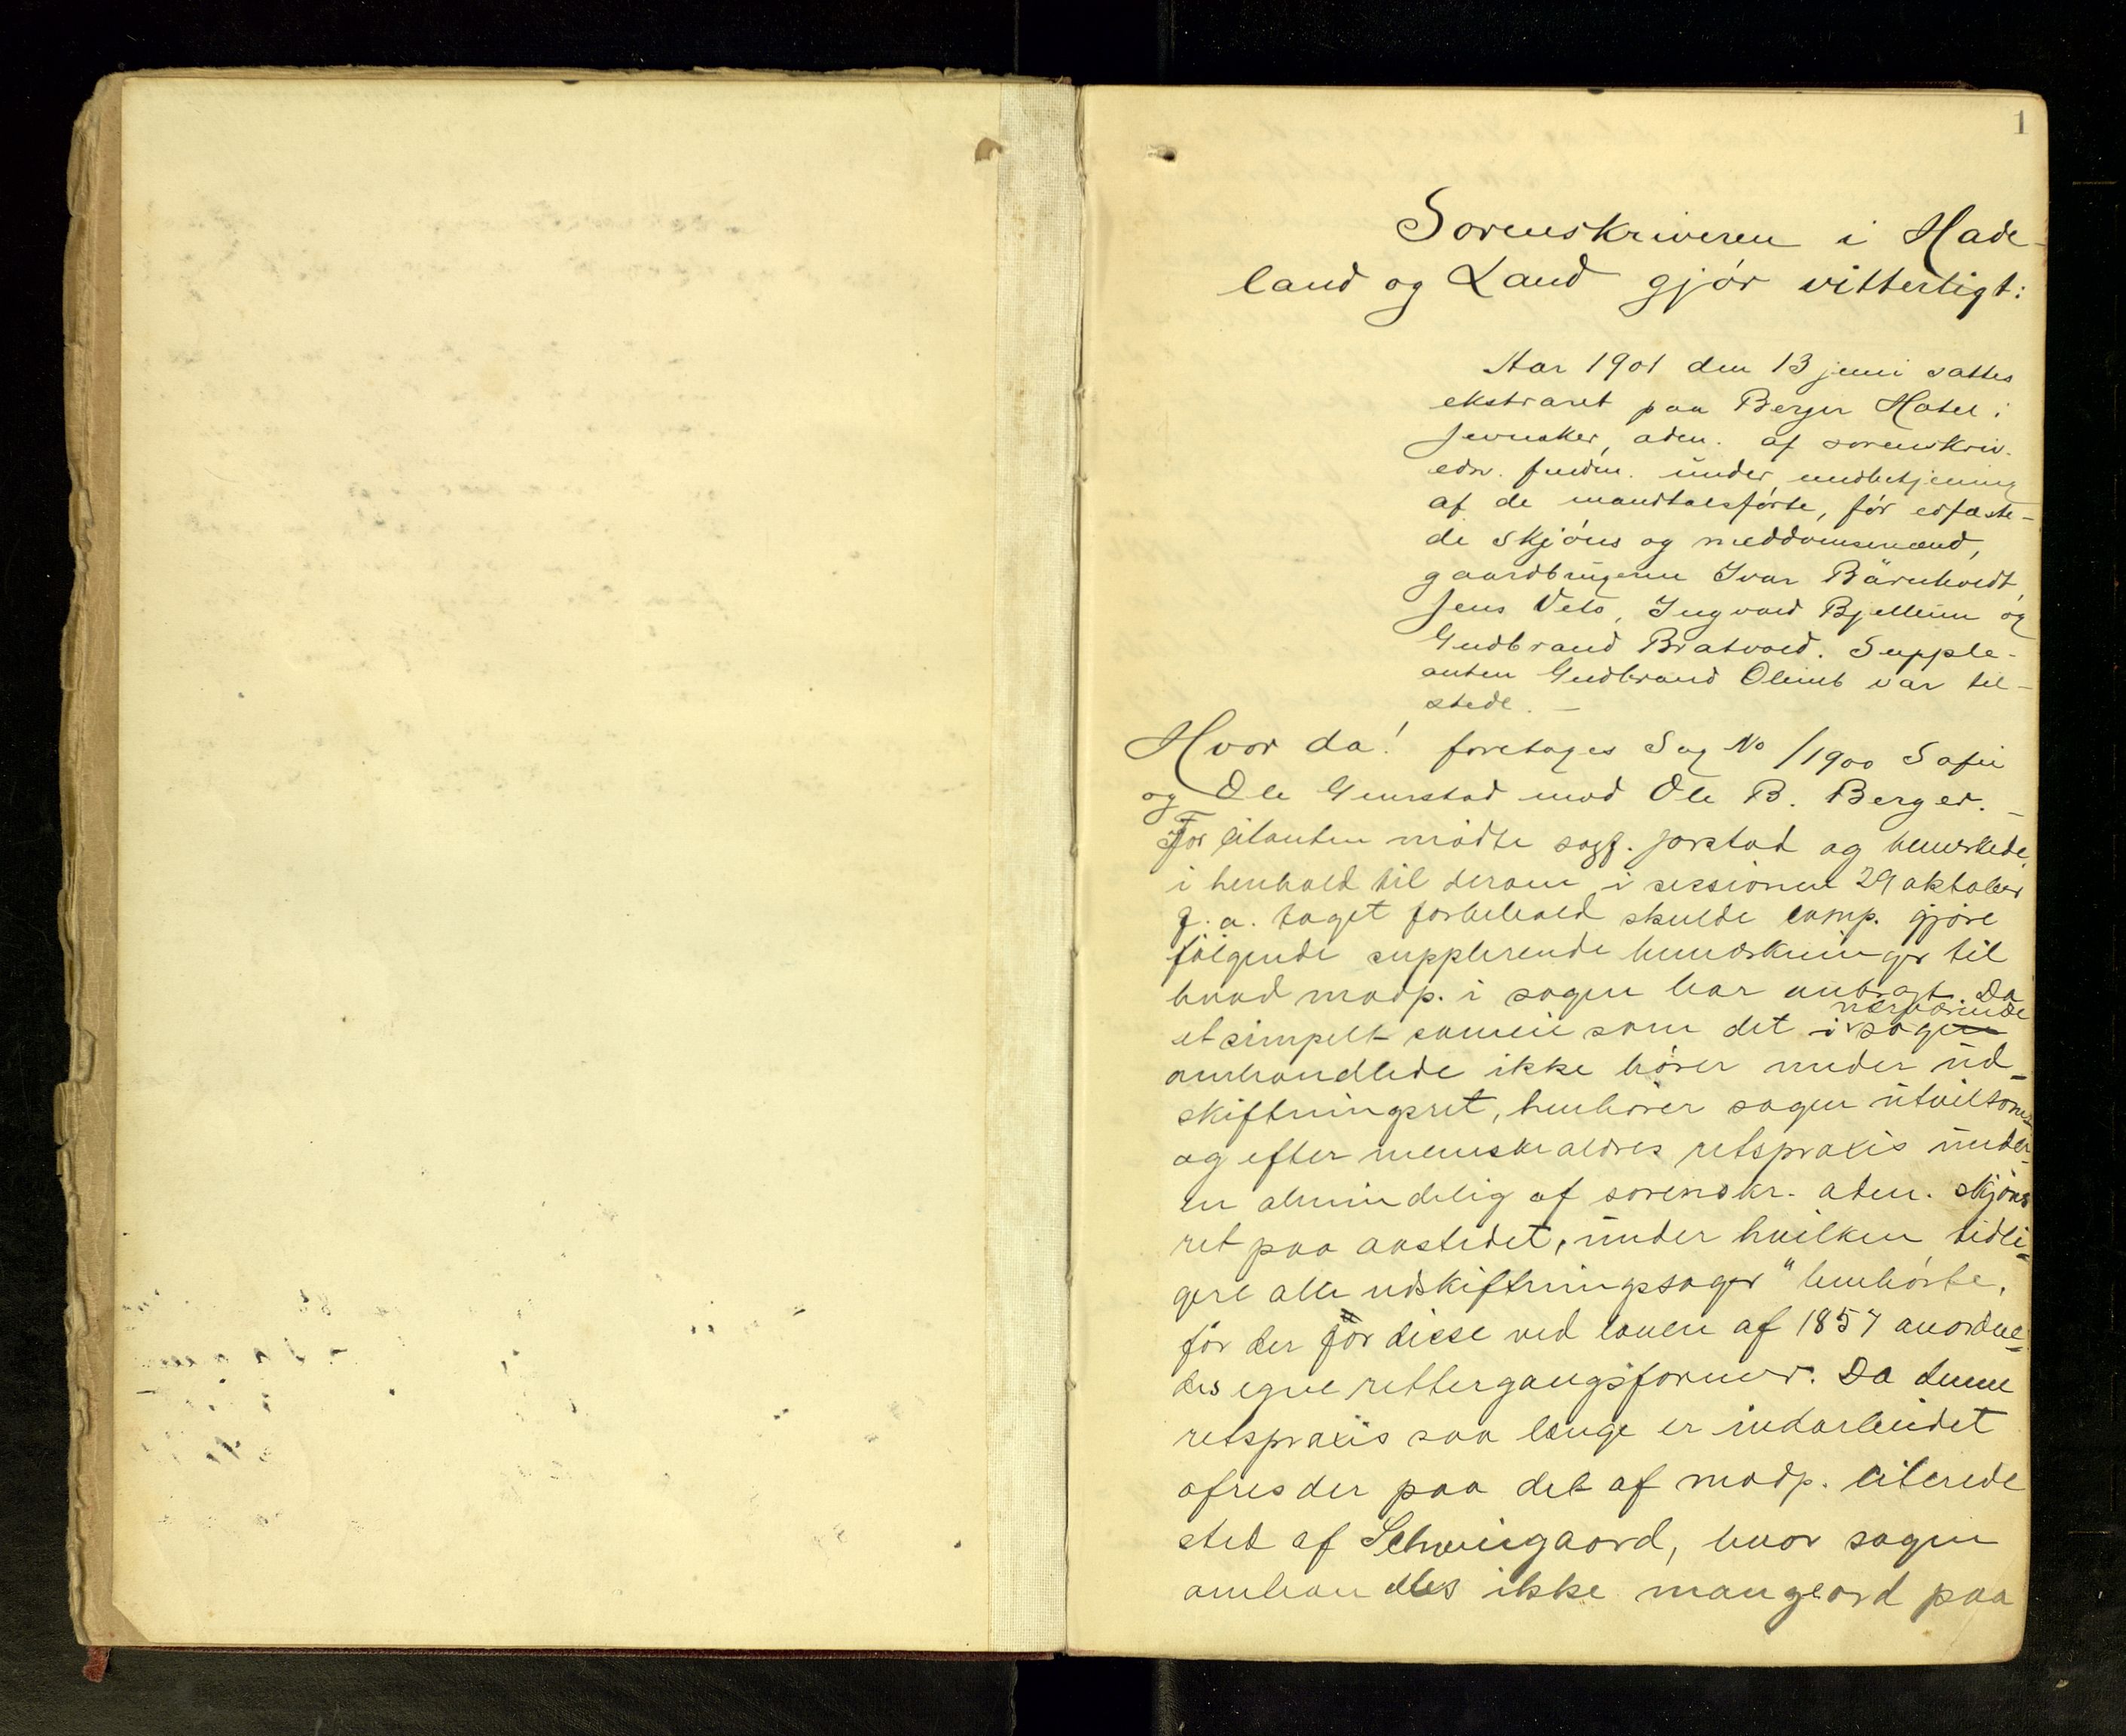 1
Sorenskriveren i Hade-
land og Land gjör vitterligt:
Aar 1901 den 13 juni sattes
ekstraret paa Berger Hotel i
Jevnaker, adm. af sorenskriv.
edsv. fuldm. under medbetjening
af de mandtalsförte, för edfæste-
de skjöns og meddomsmænd,
gaardbrugerne Ivar Bärnholdt,
Jens Velo, Ingvald Bjellum og
Gudbrand Bratvold. Supple-
anten Gudbrand Olimb var til-
stede. -
Hvor da! foretoges Sag No /1900 Sofie
og Ole Genstad mod Ole B. Berger. -
For citanten mödte sagf. Jorstad og bemerkede,
i henhold til derom i sessionen 29 oktober
f. a. taget forbehold skulde comp. gjöre
fölgende supplerende bemærkninger til
hvad modp. i sagen har anbragt. Da
et simpelt sameie som det i nærværende sagen
omhandlede ikke hörer under ud-
skiftningsret, henhörer sagen utvilsomt
og efter menskealdres retspraxis under
en almindelig af sorenskr. adm. skjöns
ret paa aastedet, under hvilken tidli-
gere alle udskiftningsager" henhörte,
för der för disse ved loven af 1857 anordne-
des egne rettergangsformer. Da denne
retspraxis saa længe er indarbeidet
ofres der paa det af modp. citerede
sted af Schweigaard, hvor sagen
omhandles ikke mangeord paa